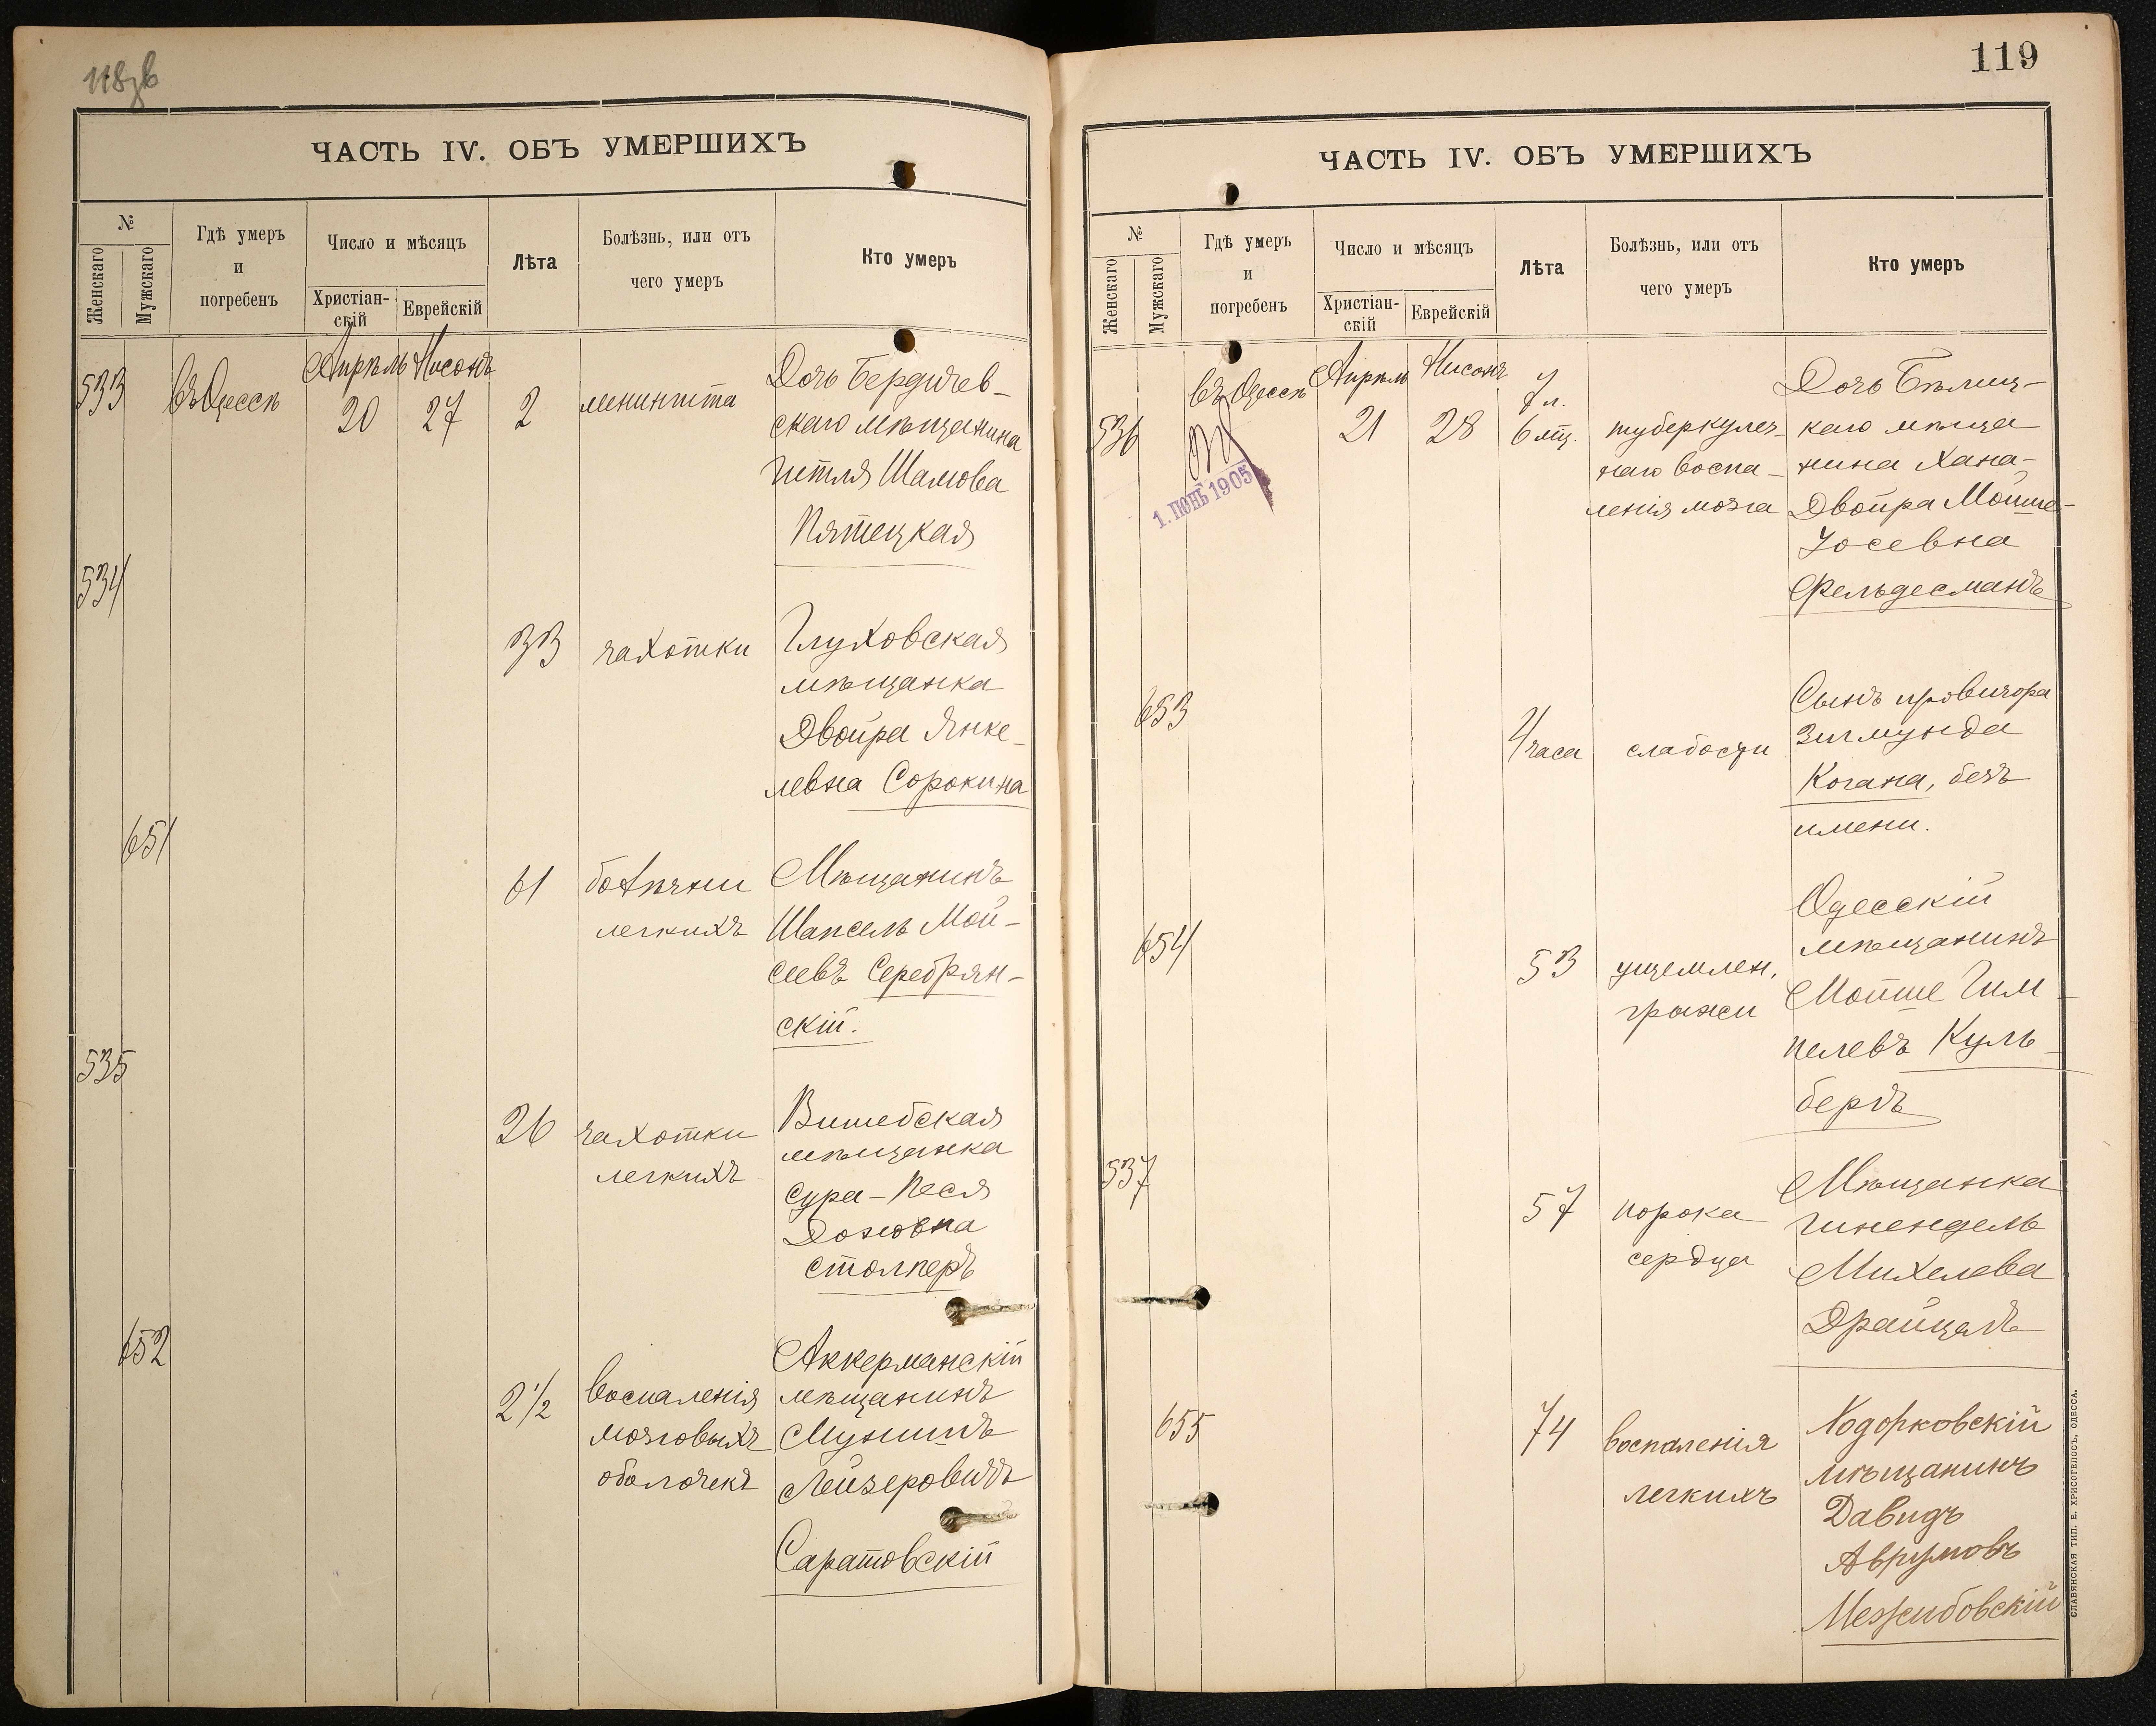 118зв
ЧАСТЬ IV. ОБЪ УМЕРШИХЪ
№
Женскаго
Мужскаго
Гдѣ умеръ
и
погребенъ
Число и мѣсяцъ
Христіан-
скій
Еврейскій
Лѣта
Болѣзнь, или отъ
чего умеръ
Кто умеръ
533
въ Одессѣ
Апрѣль
20
Нисонъ
27
2
менингита
Дочь Бердичев-
скаго мѣщанина
Гитля Шамова
Пятецкая
534
33
чахотки
Глуховская
мѣщанка
Двойра Янке-
левна Сорокина
651
61
болѣзни
легкихъ
Мѣщанинъ
Шапсель Мой-
сеевъ Серебрян-
скій.
535
26
чахотки
легкихъ
Витебская
мѣщанка
Сура-Песя
Столперъ
652
2 1/2
воспаленія
мозговыхъ
оболочекъ
Аккерманскій
мѣщанинъ
Мунишъ
Лейзеровичъ
Саратовскій
119
ЧАСТЬ IV. ОБЪ УМЕРШИХЪ
№
Женскаго
Мужскаго
Гдѣ умеръ
и
погребенъ
Число и мѣсяцъ
Христіан-
скій
Еврейскій
Лѣта
Болѣзнь, или отъ
чего умеръ
Кто умеръ
536
въ Одессѣ
1. ІЮНЬ 1905
Апрѣль
21
Нисонъ
28
7 л.
6 мц.
туберкулез-
наго воспа-
ленія мозга
Дочь Бѣлиц-
каго мѣща-
нина Хана-
Двойра Мойше-
Іосевна
Фельдесманъ
653
4 часа
слабости
Сынъ провизора
Зигмунда
Когана, безъ
имени.
654
53
ущемлен.
грыжи
Одесскій
мѣщанинъ
Мойше Гим-
пелевъ Куль-
бергъ
537
57
порока
сердца
Мѣщанка
Гинендель
Михелева
Драйцелъ
655
74
воспаленія
легкихъ
Ходорковскій
мѣщанинъ
Давидъ
Аврумовъ
Межибовскій
СЛАВЯНСКАЯ ТИП. Е. ХРИСОГЕЛОСЪ, ОДЕССА.